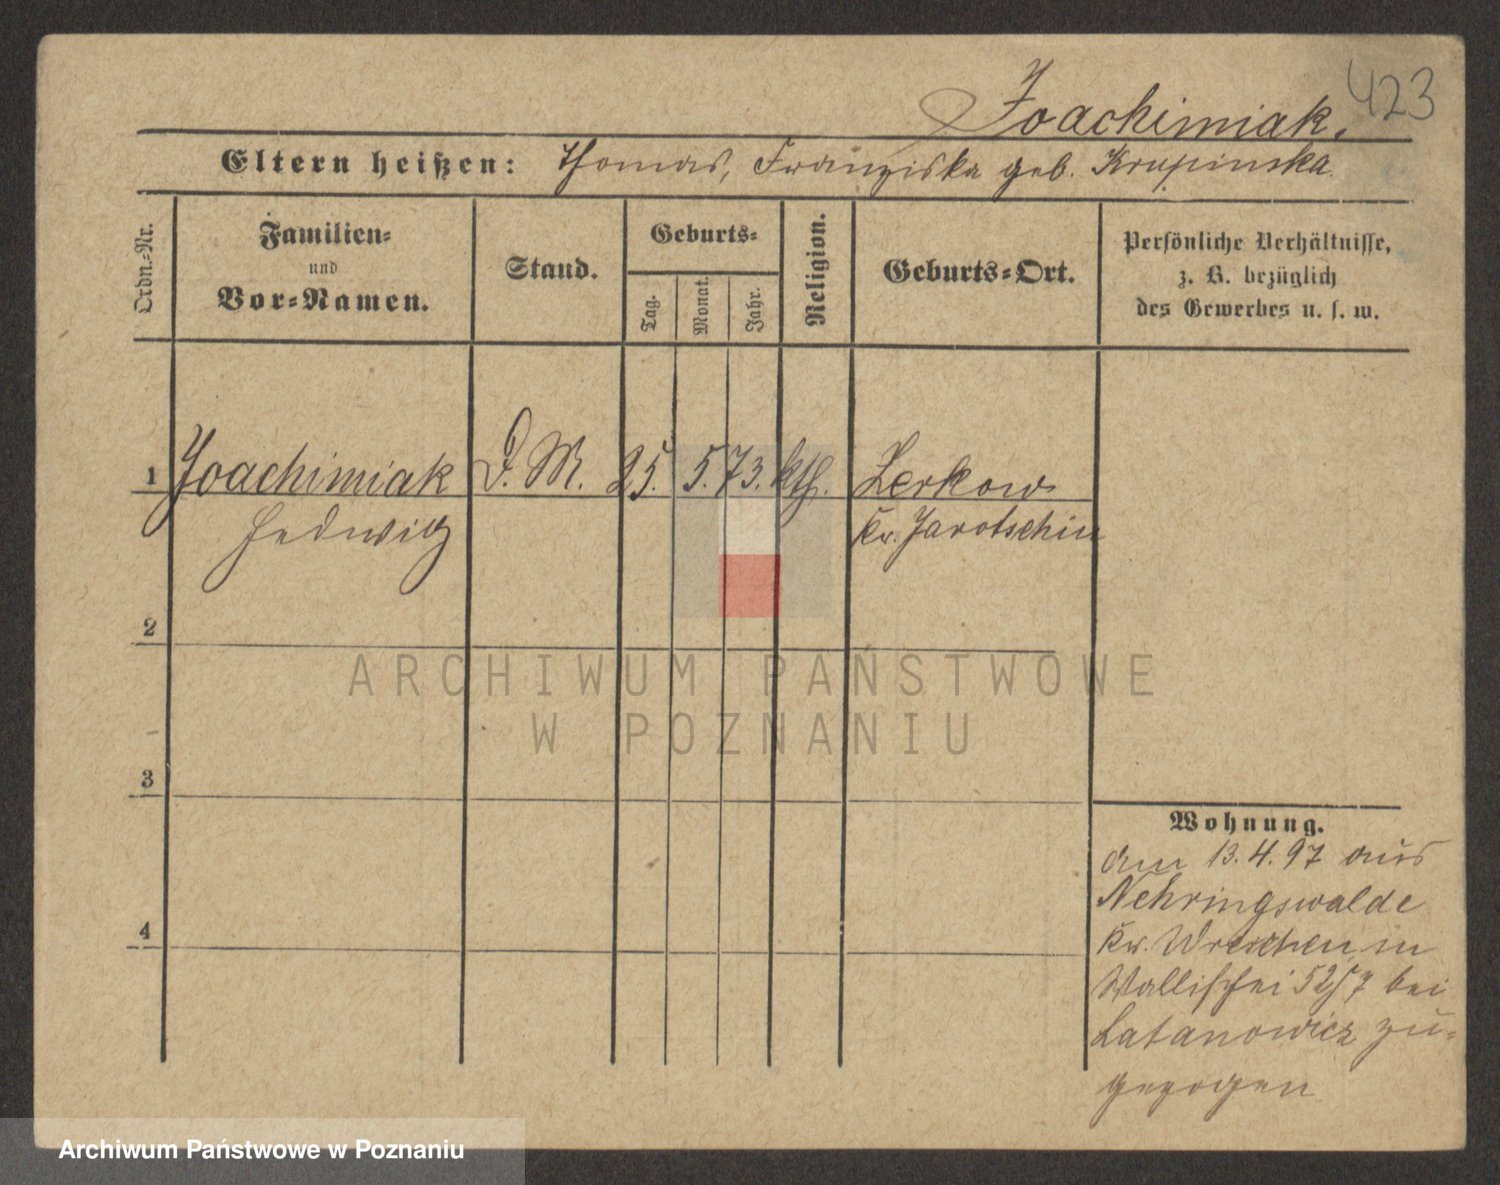 423
Joachimiak.
Eltern heißen: Thomas, Franziska geb. Krupinska.
Ordn.-Nr.
Familien-
und
Vor-Namen.
Stand.
Geburts-
Tag.
Monat.
Jahr.
Religion.
Geburts-Ort.
Persönliche Verhältnisse,
z. B. bezüglich
des Gewerbes u. s. w.
1 Joachimiak D. M. 25. 5. 73. kth. Zerkow
Hedwig Kr. Jarotschin
2
3
4
Wohnung.
am 13.4.97 aus
Nehringswalde
Kr. Wreschen in
Wallischei 52/7 bei
Latanowicz zu-
gezogen
ARCHIWUM PAŃSTWOWE
W POZNANIU
Archiwum Państwowe w Poznaniu